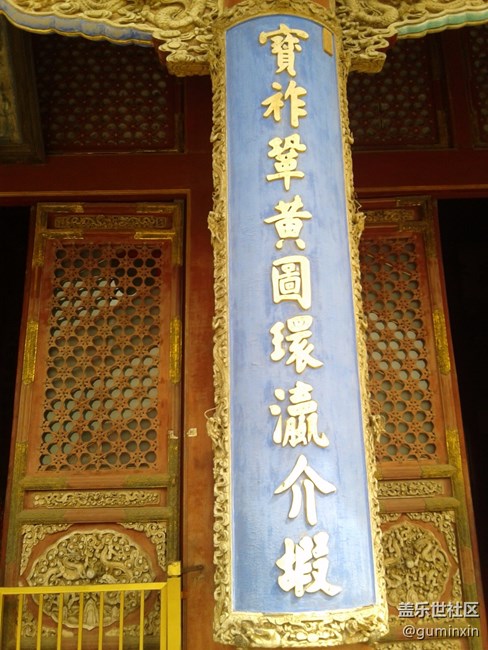 寶祚鞏黄圖環瀛介嘏
盖乐世社区
@guminxin